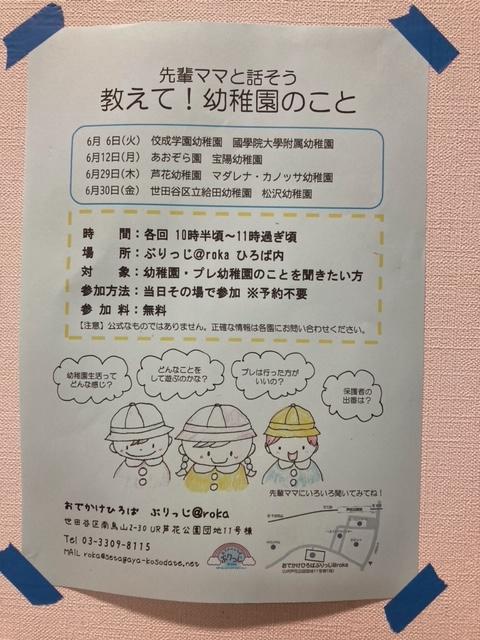 先輩ママと話そう
教えて！幼稚園のこと
6月 6日(火) 佼成学園幼稚園 國學院大學附属幼稚園
6月12日(月) あおぞら園 宝陽幼稚園
6月29日(木) 芦花幼稚園 マダレナ・カノッサ幼稚園
6月30日(金) 世田谷区立給田幼稚園 松沢幼稚園
時 間：各回 10時半頃～11時過ぎ頃
場 所：ぶりっじ@roka ひろば内
対 象：幼稚園・プレ幼稚園のことを聞きたい方
参加方法：当日その場で参加 ※予約不要
参 加 料：無料
【注意】公式なものではありません。正確な情報は各園にお問い合わせください。
幼稚園生活って
どんな感じ？
どんなことを
して遊ぶのかな？
プレは行った方が
いいの？
保護者の
出番は？
先輩ママにいろいろ聞いてみてね！
おでかけひろば ぶりっじ@roka
世田谷区南烏山2-30 UR芦花公園団地11号棟
Tel 03-3309-8115
MAIL roka@sesagaya-kosodase.net
ぶりっじ
おでかけひろばぶりっじ@roka